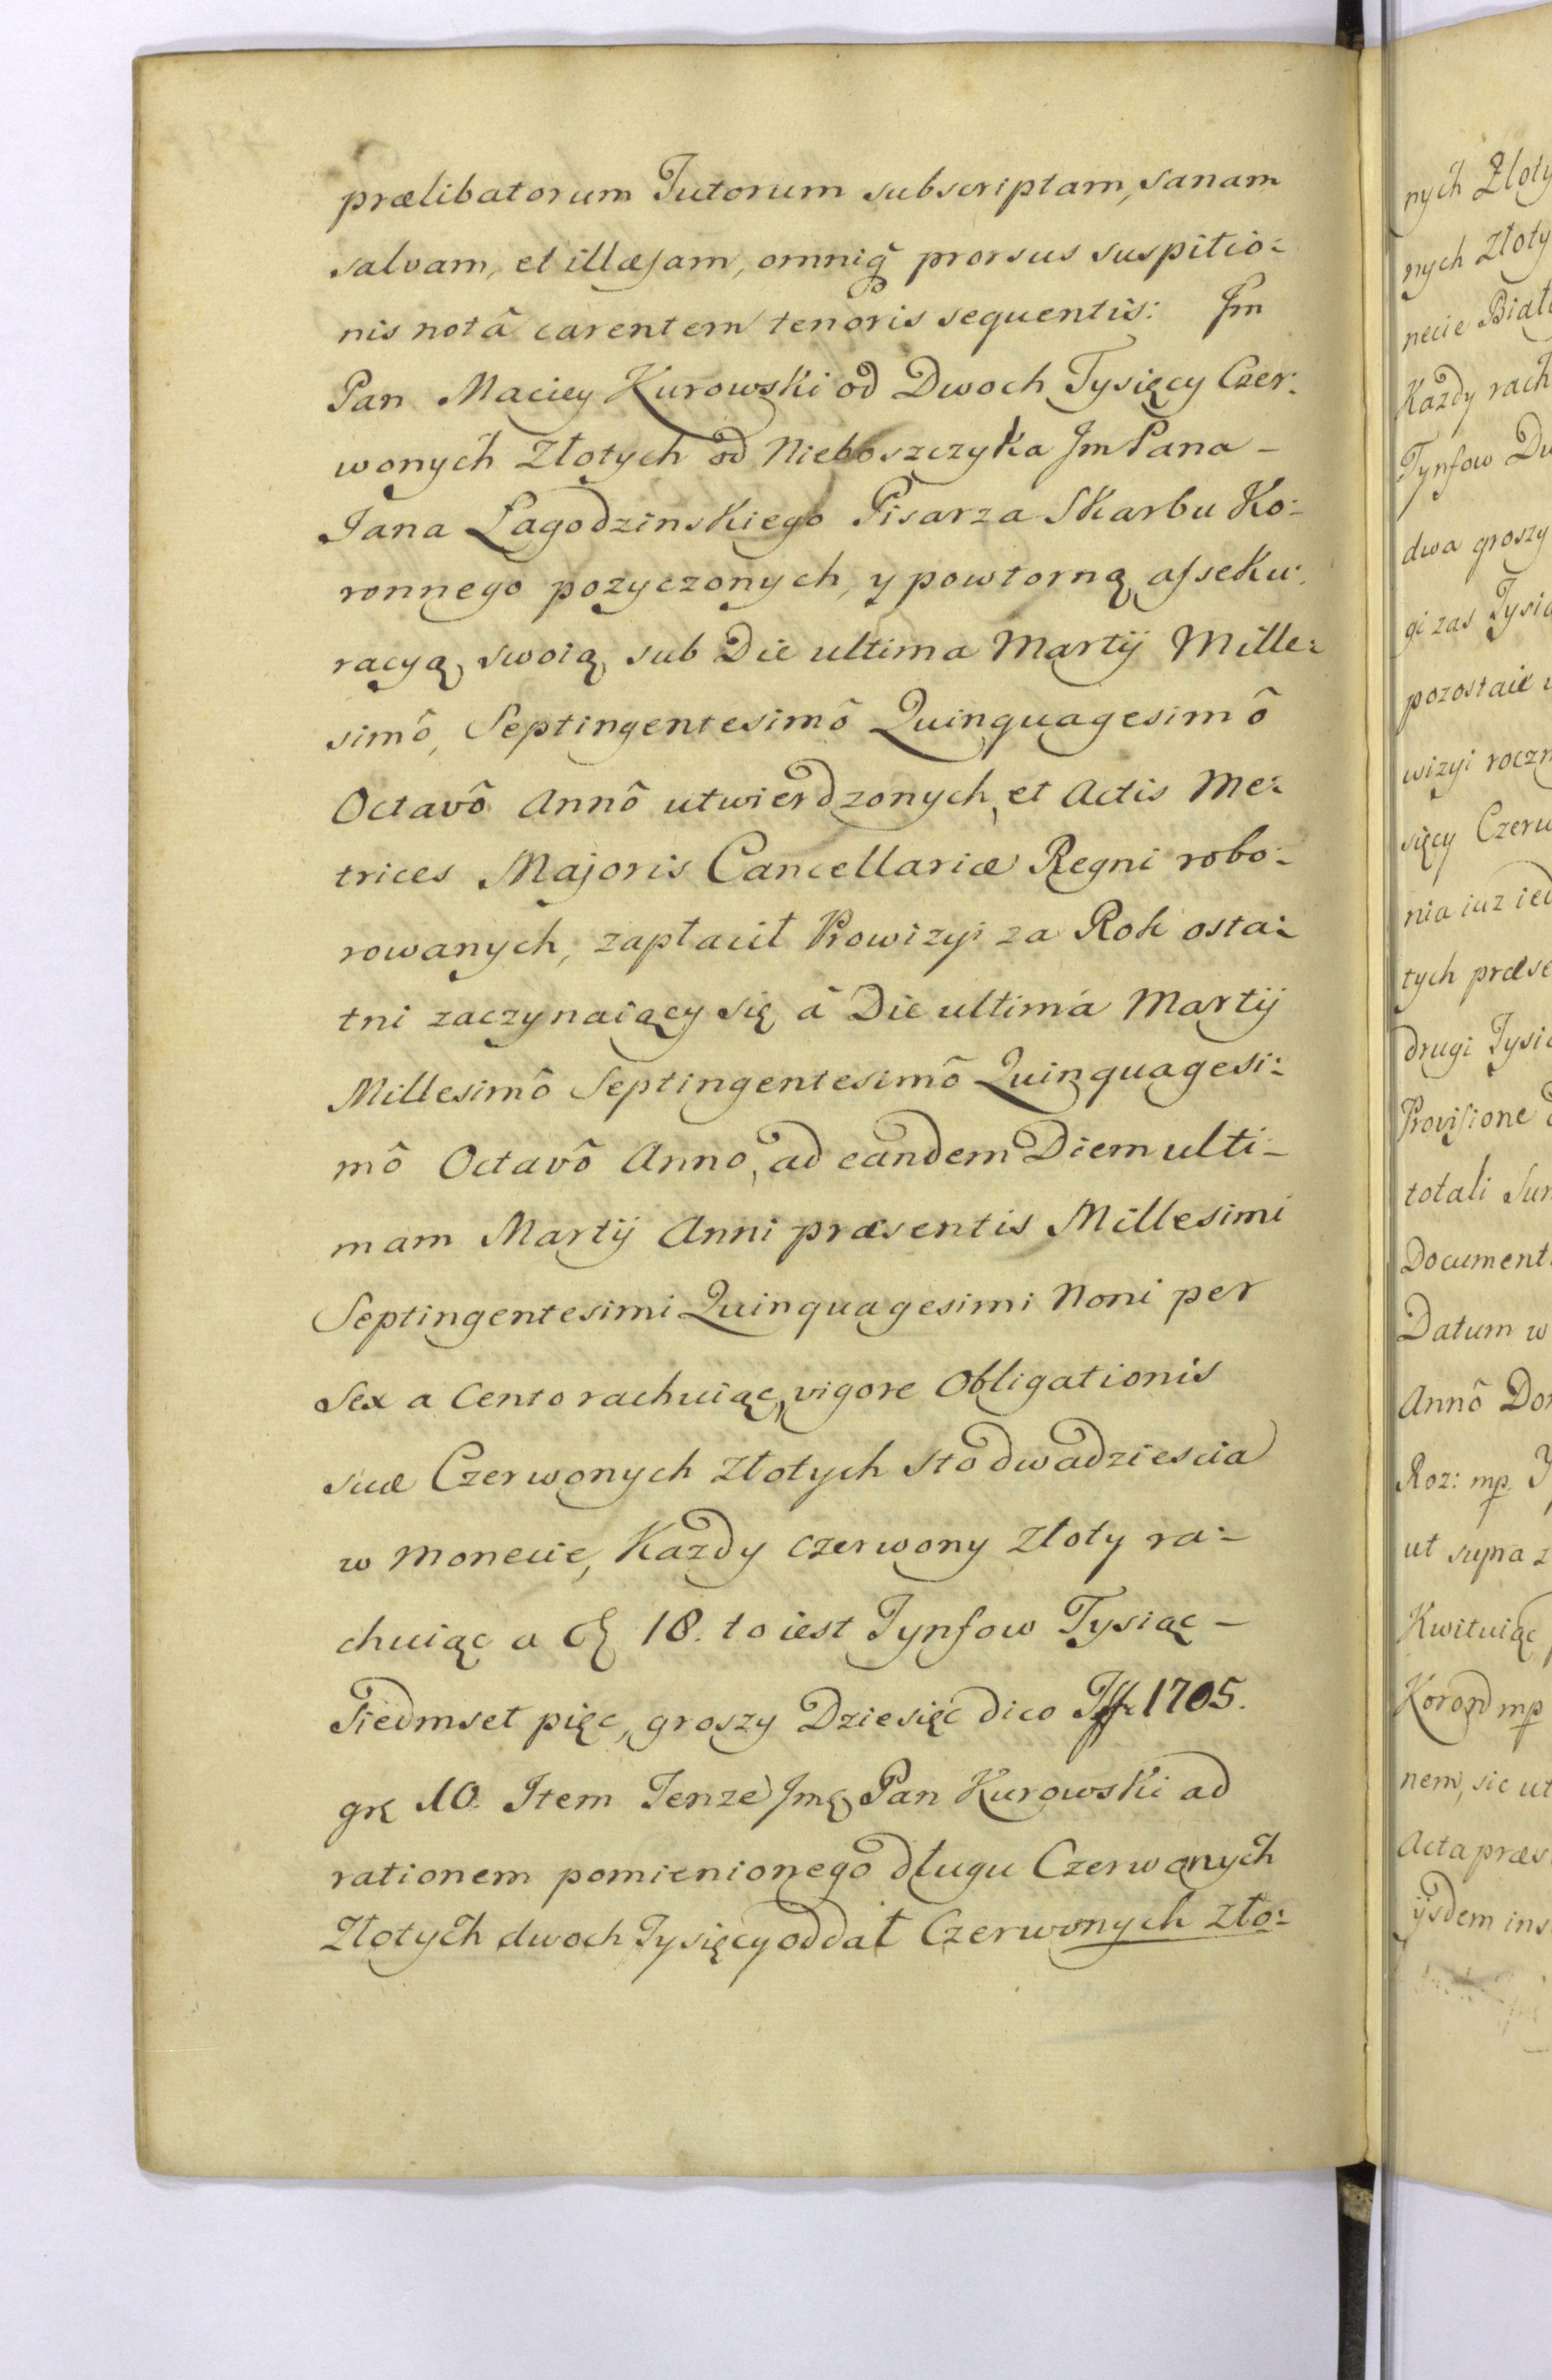 prælibatorum Tutorum subscriptam, sanam
salvam, et illæsam, omniq̃ prorsus suspitio:
nis notâ carentem tenoris sequentis: Jm
Pan Maciey Kurowski od Dwoch Tysięcy Czer:
wonych Złotych od Nieboszczyka Jm Pana –
Jana Łagodzinskiego Pisarza Skarbu Ko:
ronnego pozyczonych, y powtorną asseku:
racyą, swoią, sub Die ultima Martij Mille:
simô, Septingentesimô Quinquagesimô
Octavô Annô utwierdzonych, et Actis Me:
trices Majoris Cancellariæ Regni robo:
rowanych, zapłacił Prowizyi za Rok osta:
tni zaczynaiący się â Die ultimá Martij
Millesimô Septingentesimô Quinquagesi:
mô Octavô Anno, ad eandem Diem ulti:
mam Martij Anni præsentis Millesimi
Septingentesimi Quinquagesimi Noni per
Sex a Cento rachuiąc, vigore Obligationis
suæ Czerwonych złotych sto dwadziescia
w Monecie, Kazdy czerwony złoty ra:
chuiąc a 18. to iest Tynfow Tysiąc –
Siedmset pięc, groszy Dziesięć dico 1705.
gr 10. Item Tenze Jmę Pan Kurowski ad
rationem pomienionego długu Czerwonych
Złotych dwoch Tysięcy oddał Czerwonych zło:
nych Złoty
nych złoty
necie Biał
Kazdy rach
Tynfow Dw
dwa groszy
gi zas Tysi
pozostaie
wizyi roczn
sięcy Czerw
nia iuz ied
tych præse
drugi Tysi
Provisione
totali Sum
Document
Datum w
Annô Dom
Roz: mp
ut supra z
Kwituiąc
Korond mp
nem, sic ut
Acta præs
ijsdem ins